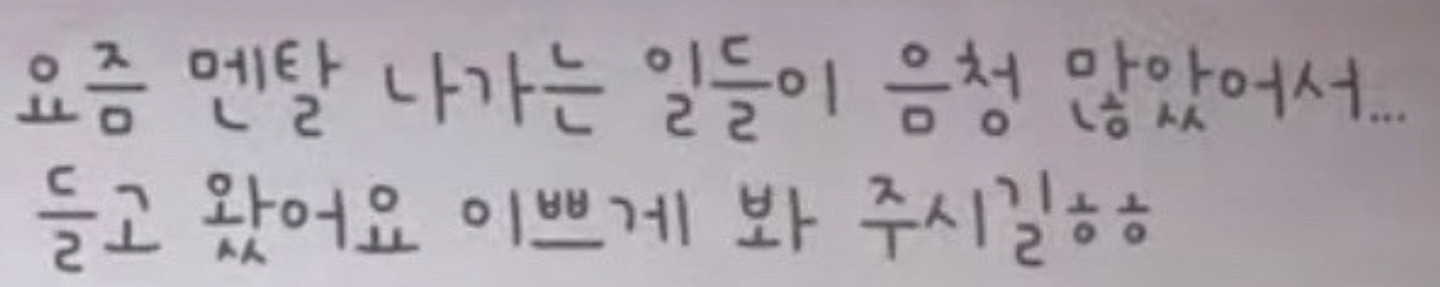 요즘 멘탈 나가는 일들이 음청 많았어서...
들고 왔어요 이쁘게 봐 주시길ㅎㅎ